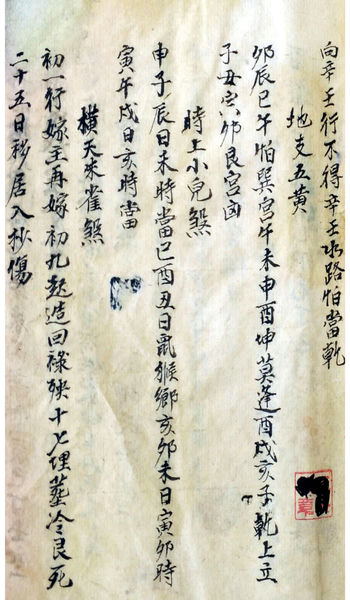 向辛壬行不得辛壬水路怕當乾
地支五黄
卯辰巳午怕巽宫午未申酉坤莫逢酉戌亥子乾上立
子丑寅卯艮宫凶
時上小兒煞
申子辰日未時當巳酉丑日鼠猴鄉亥卯未日寅卯時
寅午戌日亥時當
横天朱雀煞
初一行嫁主再嫁初九起造回禄殃十七埋葬冷良死
二十五日移居人抄傷